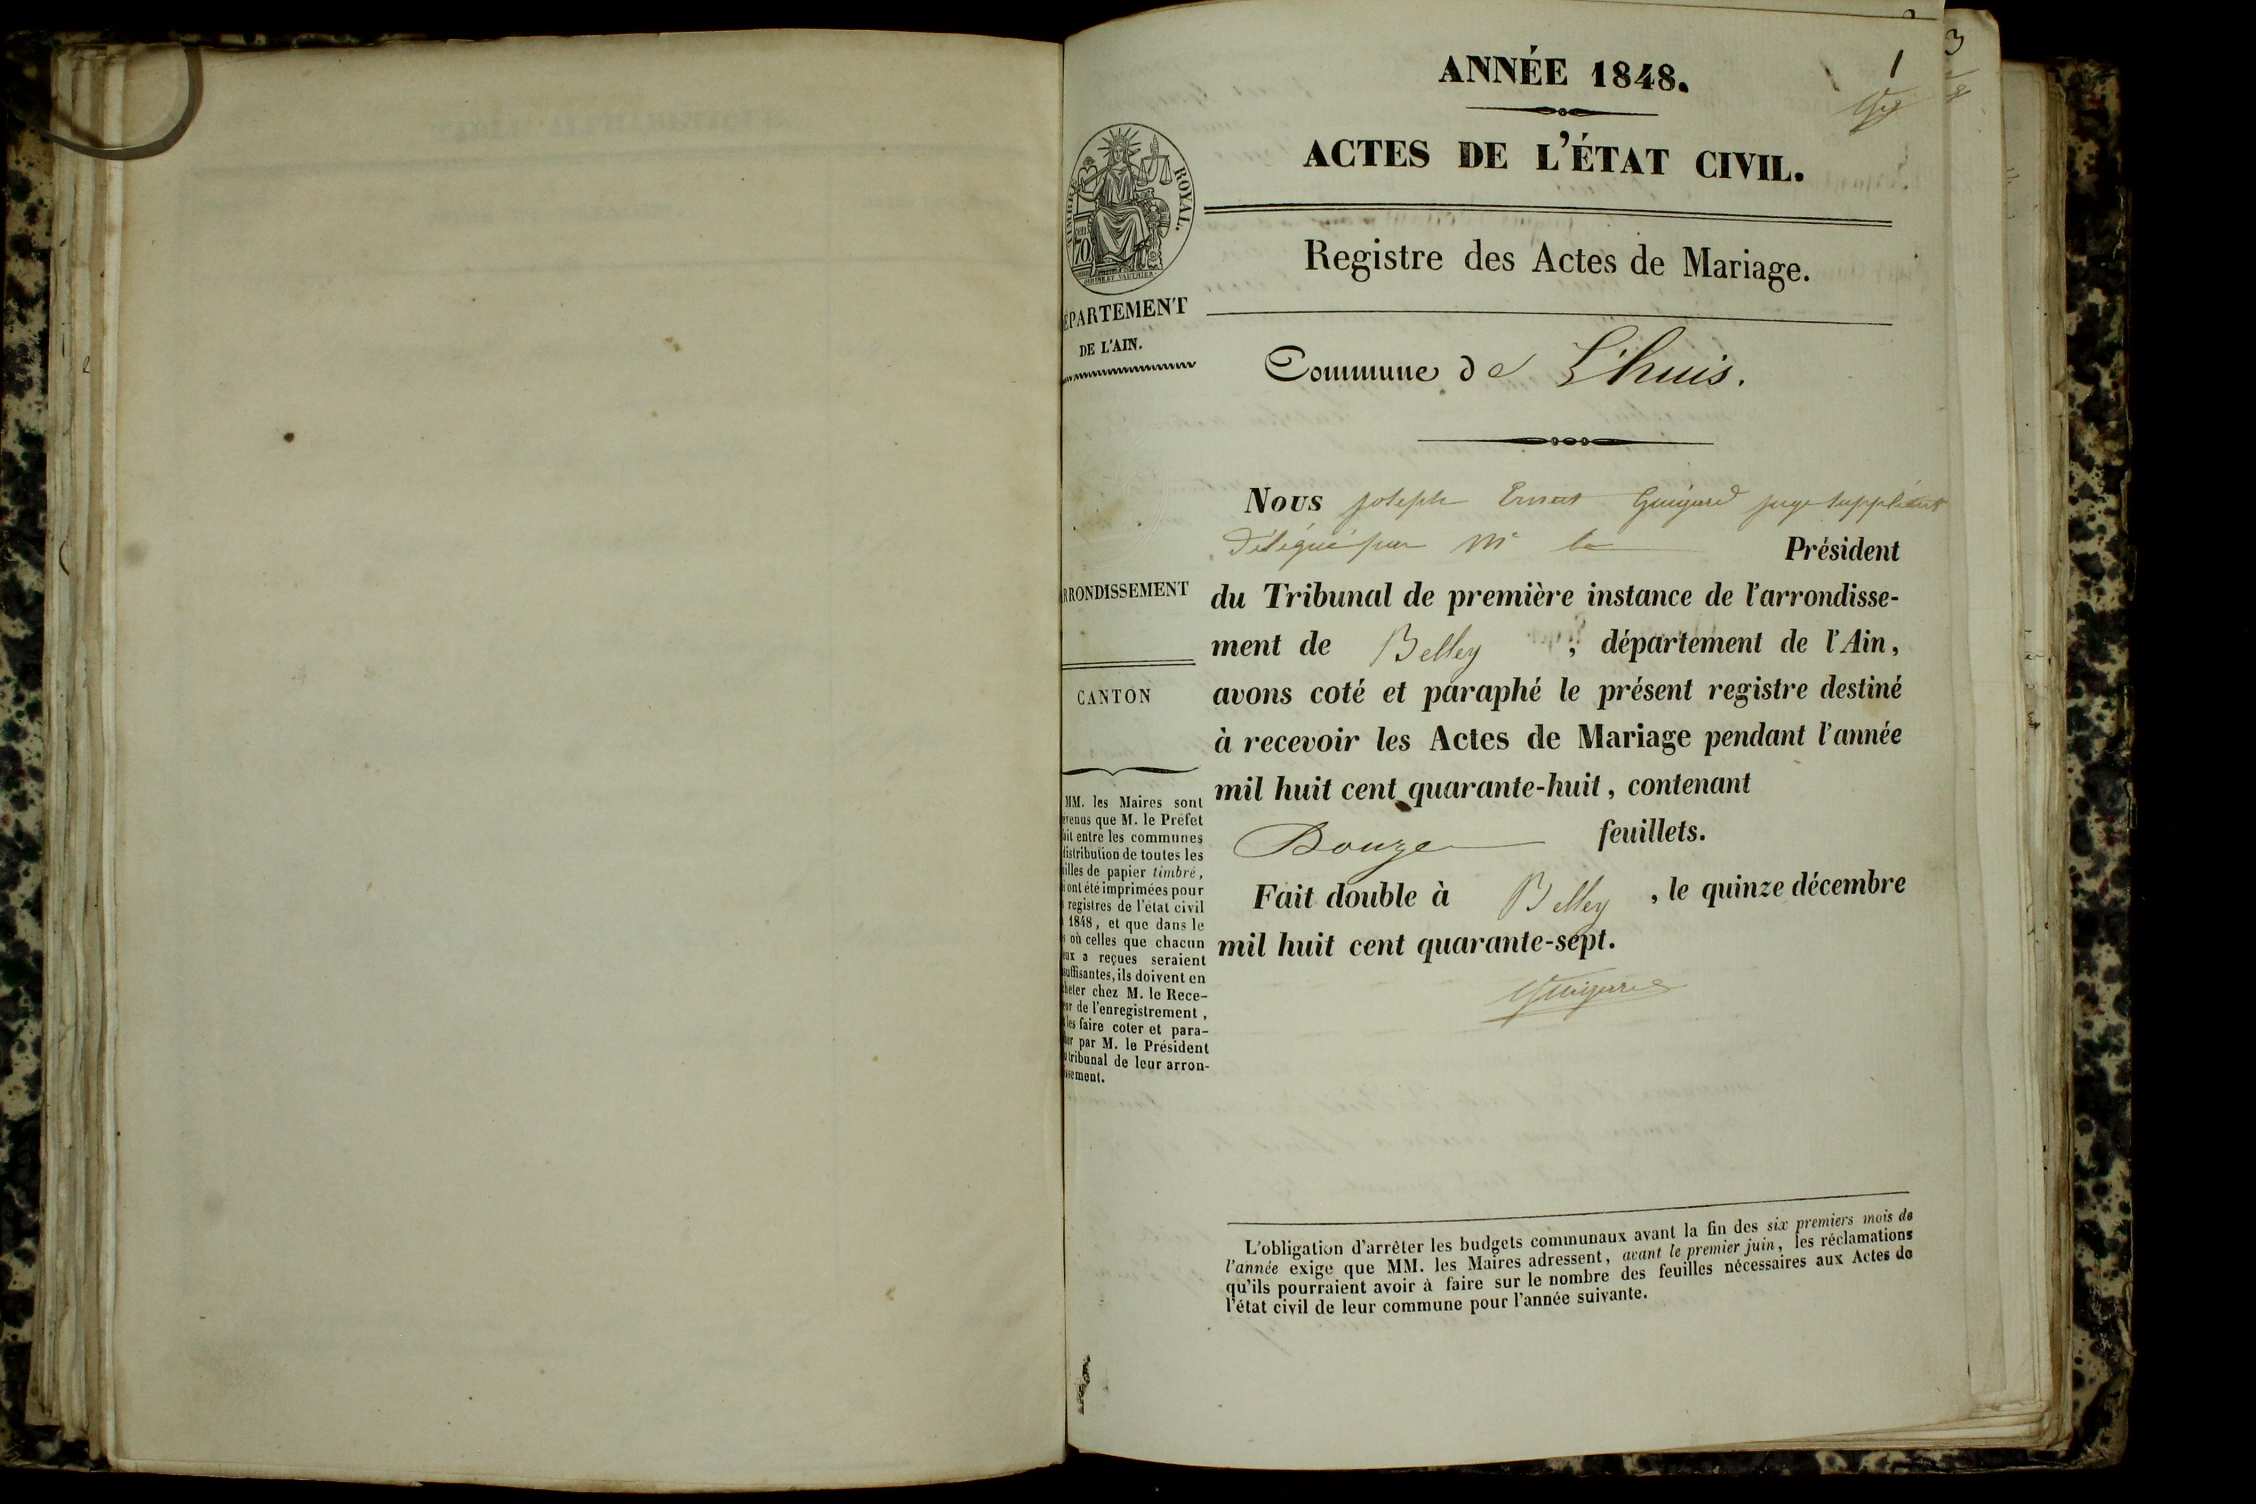 ANNÉE 1848.
1
3
ACTES DE L'ÉTAT CIVIL.
TIMBRE ROYAL.
70
Registre des Actes de Mariage.
ÉPARTEMENT
DE L'AIN.
Commune de L'huis.
Nous joseph Ernest Guigard juge suppléant
délégué par Mr le Président
RRONDISSEMENT
du Tribunal de première instance de l'arrondisse-
ment de Belley , département de l'Ain,
CANTON
avons coté et paraphé le présent registre destiné
à recevoir les Actes de Mariage pendant l'année
mil huit cent quarante-huit, contenant
Douze feuillets.
Fait double à Belley , le quinze décembre
mil huit cent quarante-sept.
Guigard
MM. les Maires sont
évenus que M. le Préfet
fait entre les communes
distribution de toutes les
uilles de papier timbré,
i ont été imprimées pour
s registres de l'état civil
1848, et que dans le
s où celles que chacun
eux a reçues seraient
suffisantes, ils doivent en
cheter chez M. le Rece-
eur de l'enregistrement,
les faire coter et para-
her par M. le Président
u tribunal de leur arron-
issement.
L'obligation d'arrêter les budgets communaux avant la fin des six premiers mois de
l'année exige que MM. les Maires adressent, avant le premier juin, les réclamations
qu'ils pourraient avoir à faire sur le nombre des feuilles nécessaires aux Actes de
l'état civil de leur commune pour l'année suivante.